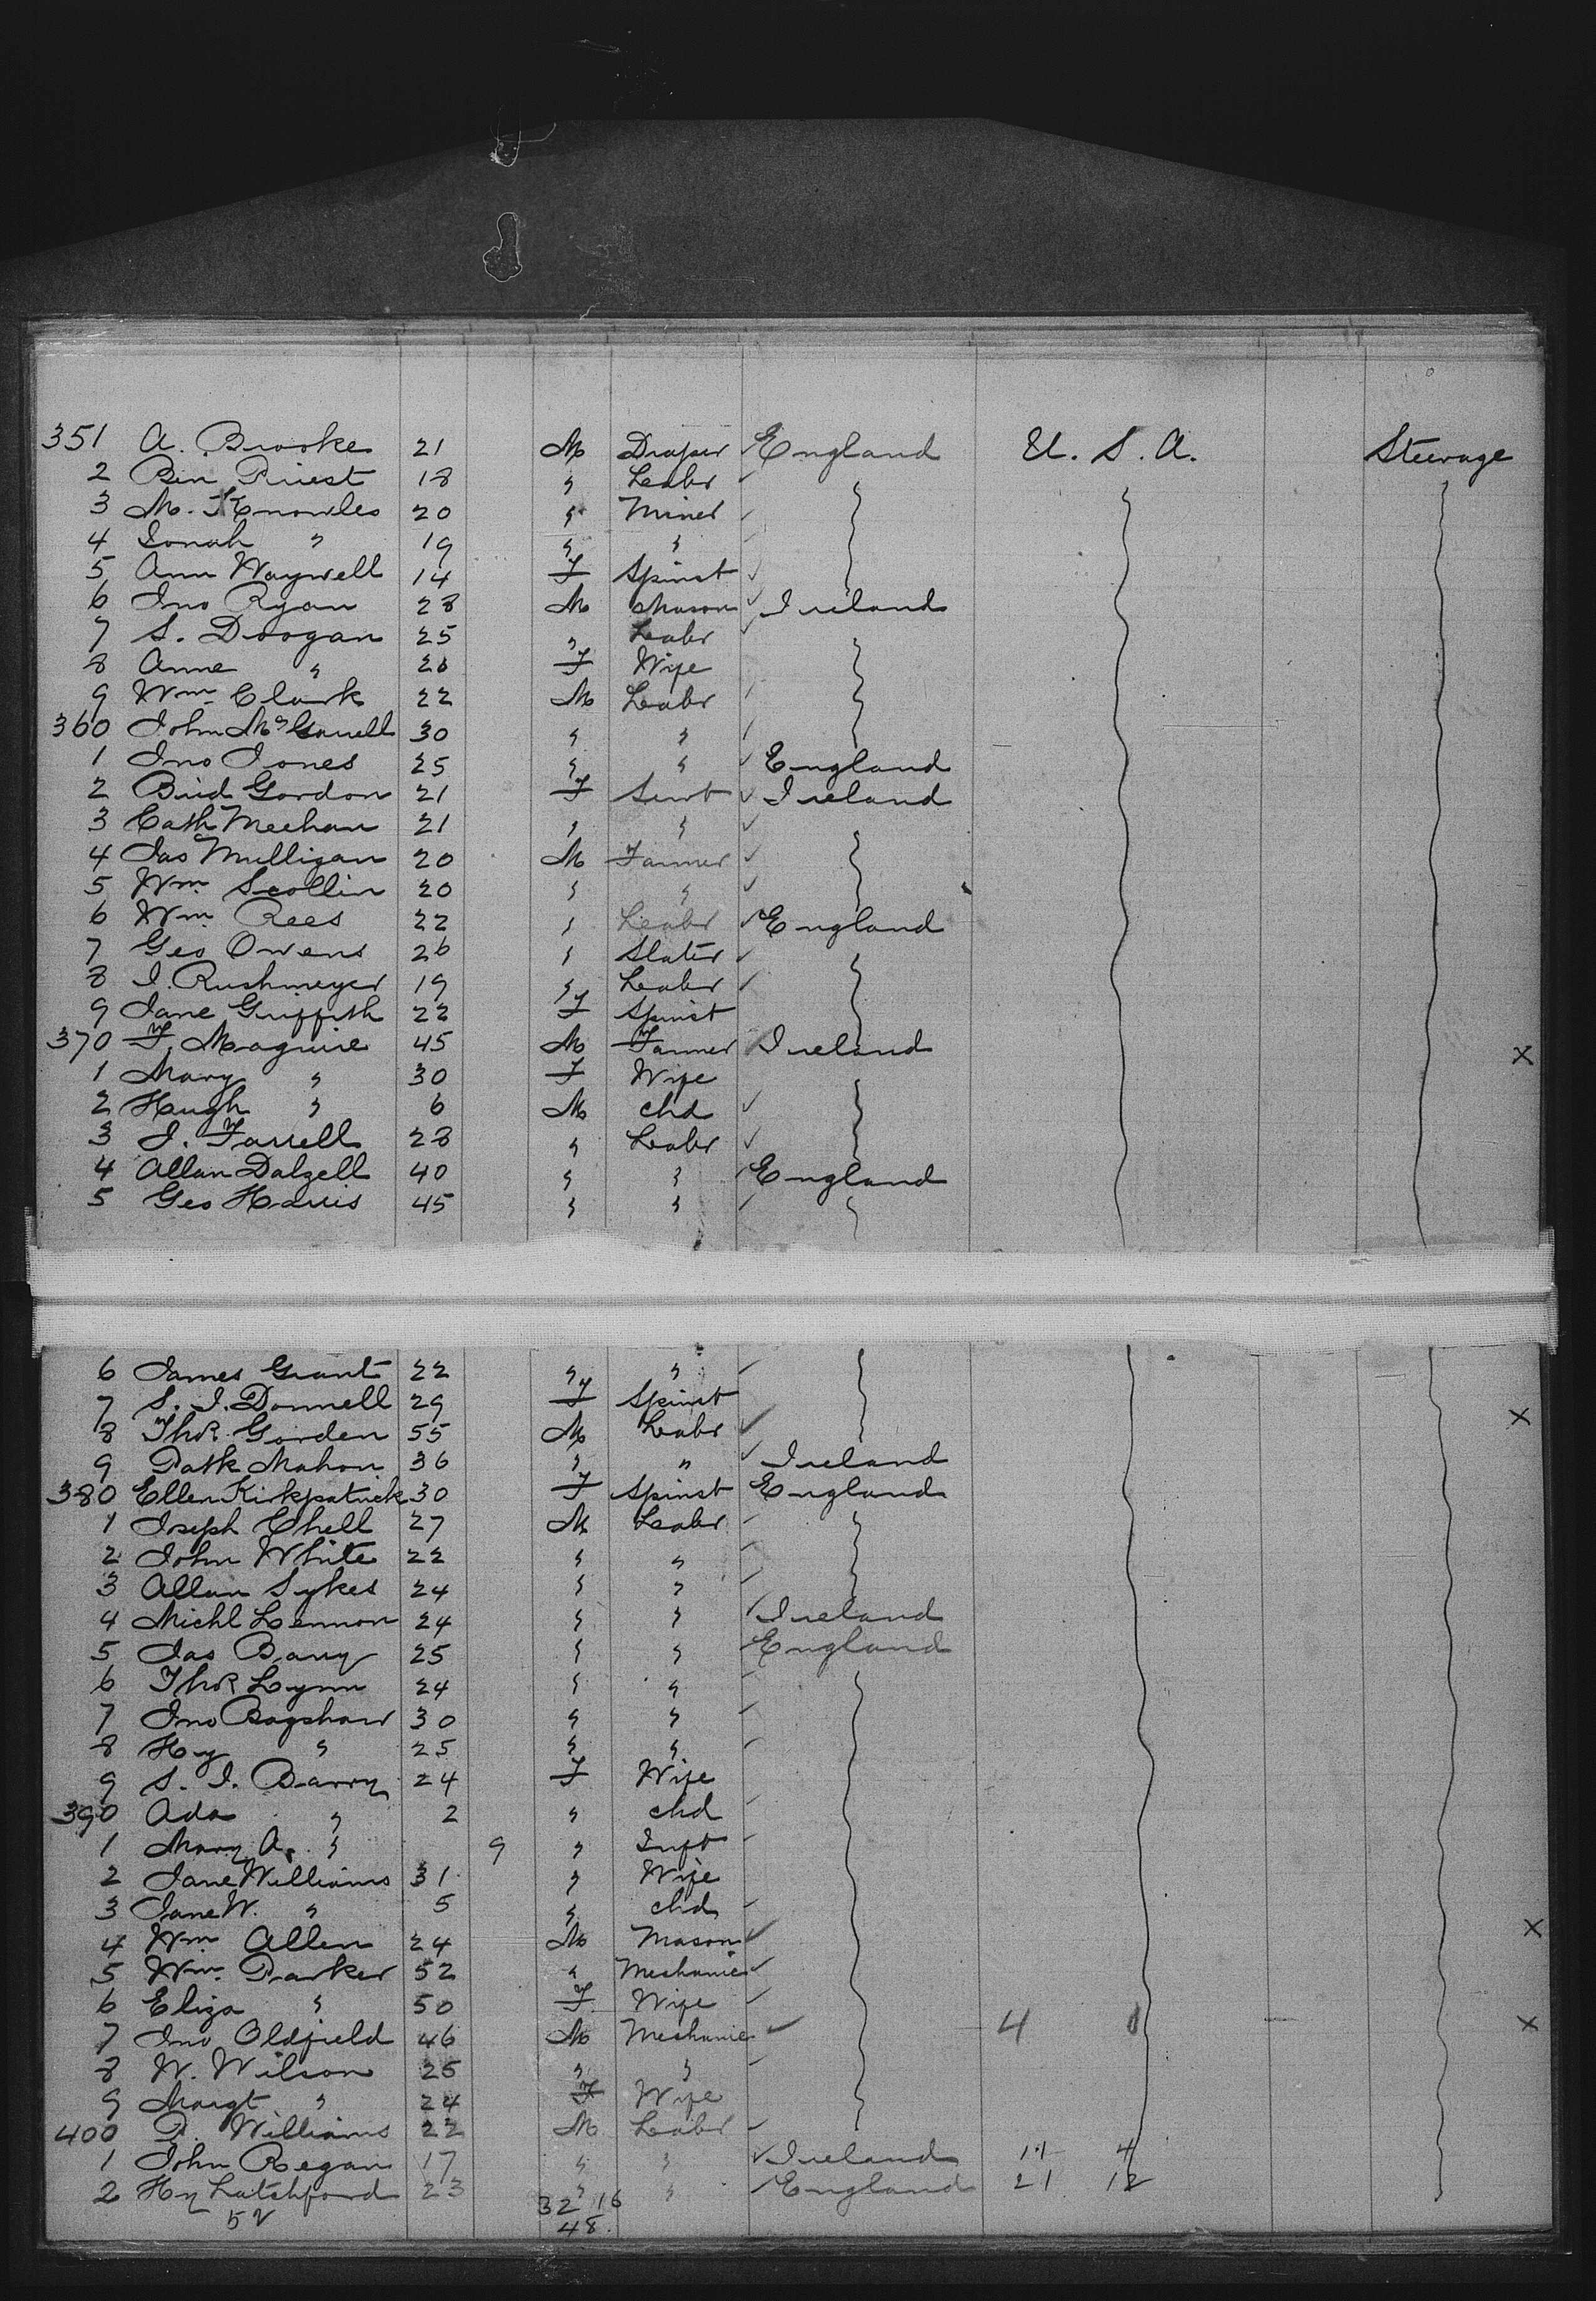 351 A. Brooke 21 M Draper England U.S.A. Steerage
2 Ben Priest 18 " Labr
3 M. Knowles 20 " Miner
4 Jonah " 19 " "
5 Ann Waywell 14 F Spinst
6 Jno Ryan 28 M Mason Ireland
7 S. Doogan 25 " Labr
8 Anne " 26 F Wife
9 Wm Clark 22 M Labr
360 John McGarrell 30 " "
1 Jno Jones 25 " " England
2 Brid Gordon 21 F Servt Ireland
3 Cath Meehan 21 " "
4 Jas Mulligan 20 M Farmer
5 Wm Scollin 20 " "
6 Wm Rees 22 " Labr England
7 Geo Owens 26 " Slater
8 J. Rushmeyer 19 " Labr
9 Jane Griffith 22 F Spinst
370 F. Maguire 45 M Farmer Ireland X
1 Mary " 30 F Wife
2 Hugh " 6 M chd
3 J. Farrell 28 " Labr
4 Allan Dalzell 40 " " England
5 Geo Harris 45 " "
6 James Grant 22 " "
7 S. J. Donnell 29 F Spinst
8 Thos Gorden 55 M Labr X
9 Patk Mahon 36 " " Ireland
380 Ellen Kirkpatrick 30 F Spinst England
1 Joseph Chell 27 M Labr
2 John White 22 " "
3 Allan Sykes 24 " "
4 Michl Lennon 24 " " Ireland
5 Jas Barry 25 " " England
6 Thos Lynn 24 " "
7 Jno Bagshaw 30 " "
8 Hy " 25 " "
9 S. J. Barry 24 F Wife
390 Ada " 2 " chd
1 Mary A. " 9 " Inft
2 Jane Williams 31 " Wife
3 Jane W. " 5 " chd
4 Wm Allen 24 M Mason X
5 Wm Parker 52 " Mechanic
6 Eliza " 50 F Wife
7 Jno Oldfield 46 M Mechanic 4 X
8 W. Wilson 25 " "
9 Margt " 24 F Wife
400 P. Williams 22 M Labr
1 John Regan 17 " " Ireland 17 4
2 Hy Latchford 23 " " England 21 12
52 32 16
48